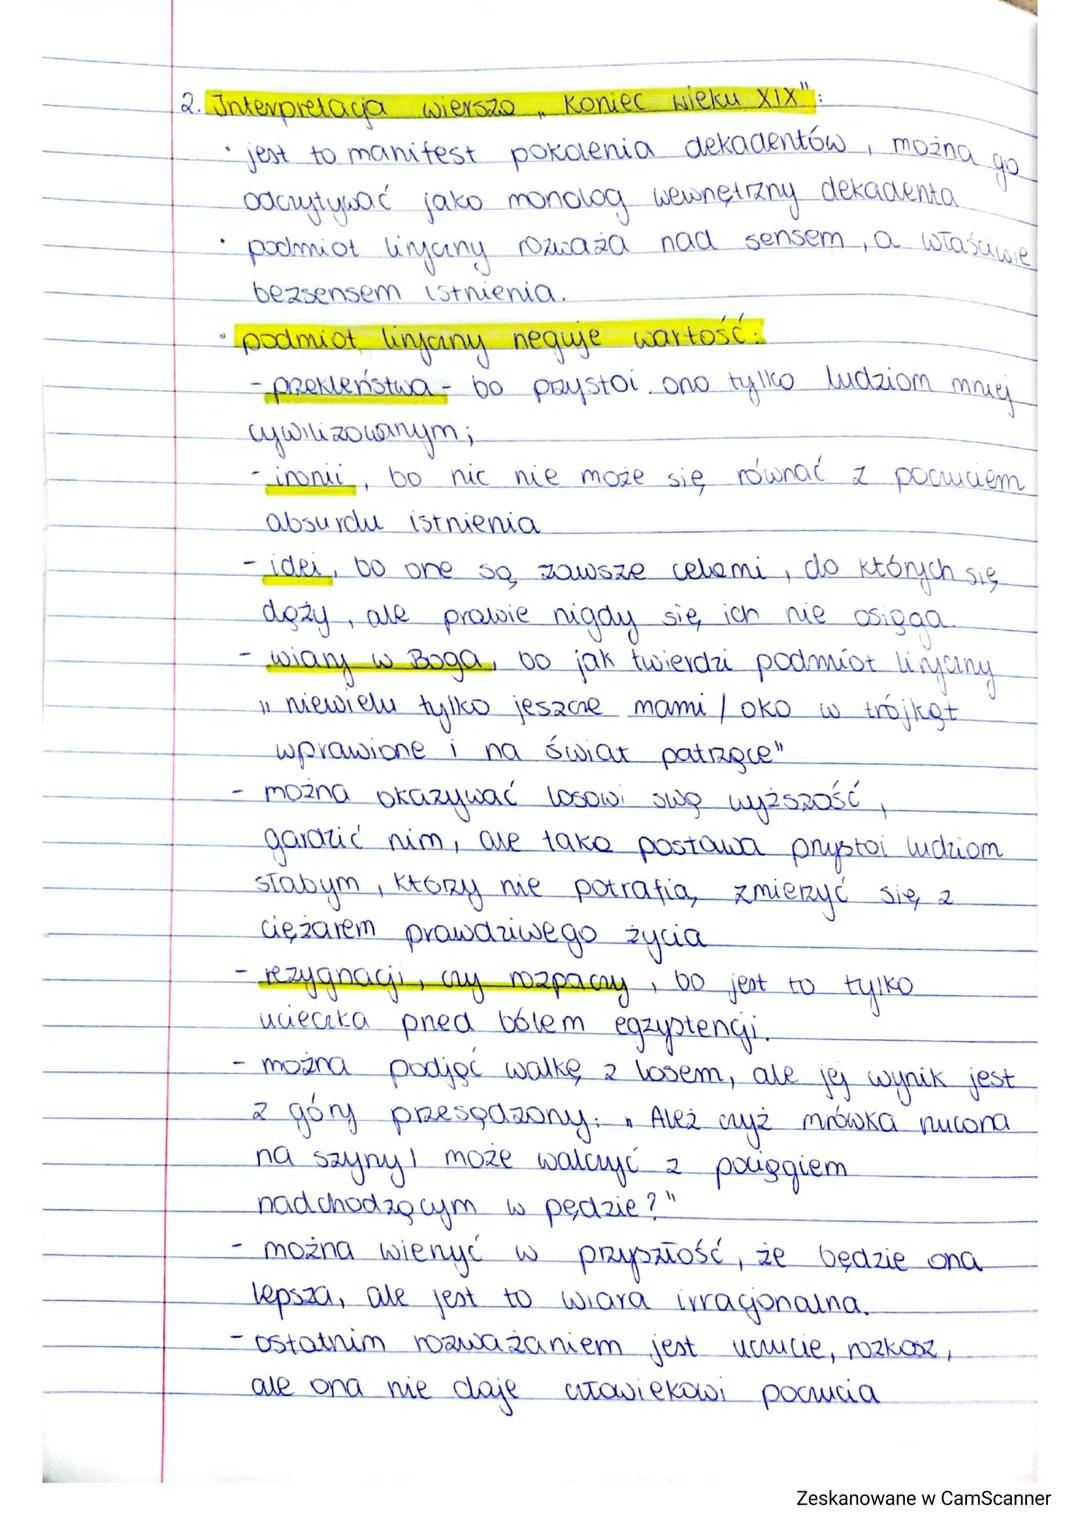 2. Interpretacja wiersza „Koniec wieku XIX":
· jest to manifest pokolenia dekadentów, można go
odczytywać jako monolog wewnętrzny dekadenta
· podmiot liryczny rozważa nad sensem, a właściwie
bezsensem istnienia.
· podmiot liryczny neguje wartość:
- przekleństwa - bo przystoi ono tylko ludziom mniej
cywilizowanym;
- ironii, bo nic nie może się równać z poczuciem
absurdu istnienia
- idei, bo one są zawsze celami, do których się
dąży, ale prawie nigdy się ich nie osiąga.
- wiary w Boga, bo jak twierdzi podmiot liryczny
„niewielu tylko jeszcze mami / oko w trójkąt
wprawione i na świat patrzące"
- można okazywać losowi swą wyższość,
gardzić nim, ale taka postawa przystoi ludziom
słabym, którzy nie potrafią zmierzyć się z
ciężarem prawdziwego życia
- rezygnacji, czy rozpaczy, bo jest to tylko
ucieczka przed bólem egzystencji.
- można podjąć walkę z losem, ale jej wynik jest
z góry przesądzony: „Ależ czyż mrówka rzucona
na szyny / może walczyć z pociągiem
nadchodzącym w pędzie?"
- można wierzyć w przyszłość, że będzie ona
lepsza, ale jest to wiara irracjonalna.
- ostatnim rozważaniem jest uczucie, rozkosz,
ale ona nie daje człowiekowi poczucia
Zeskanowane w CamScanner